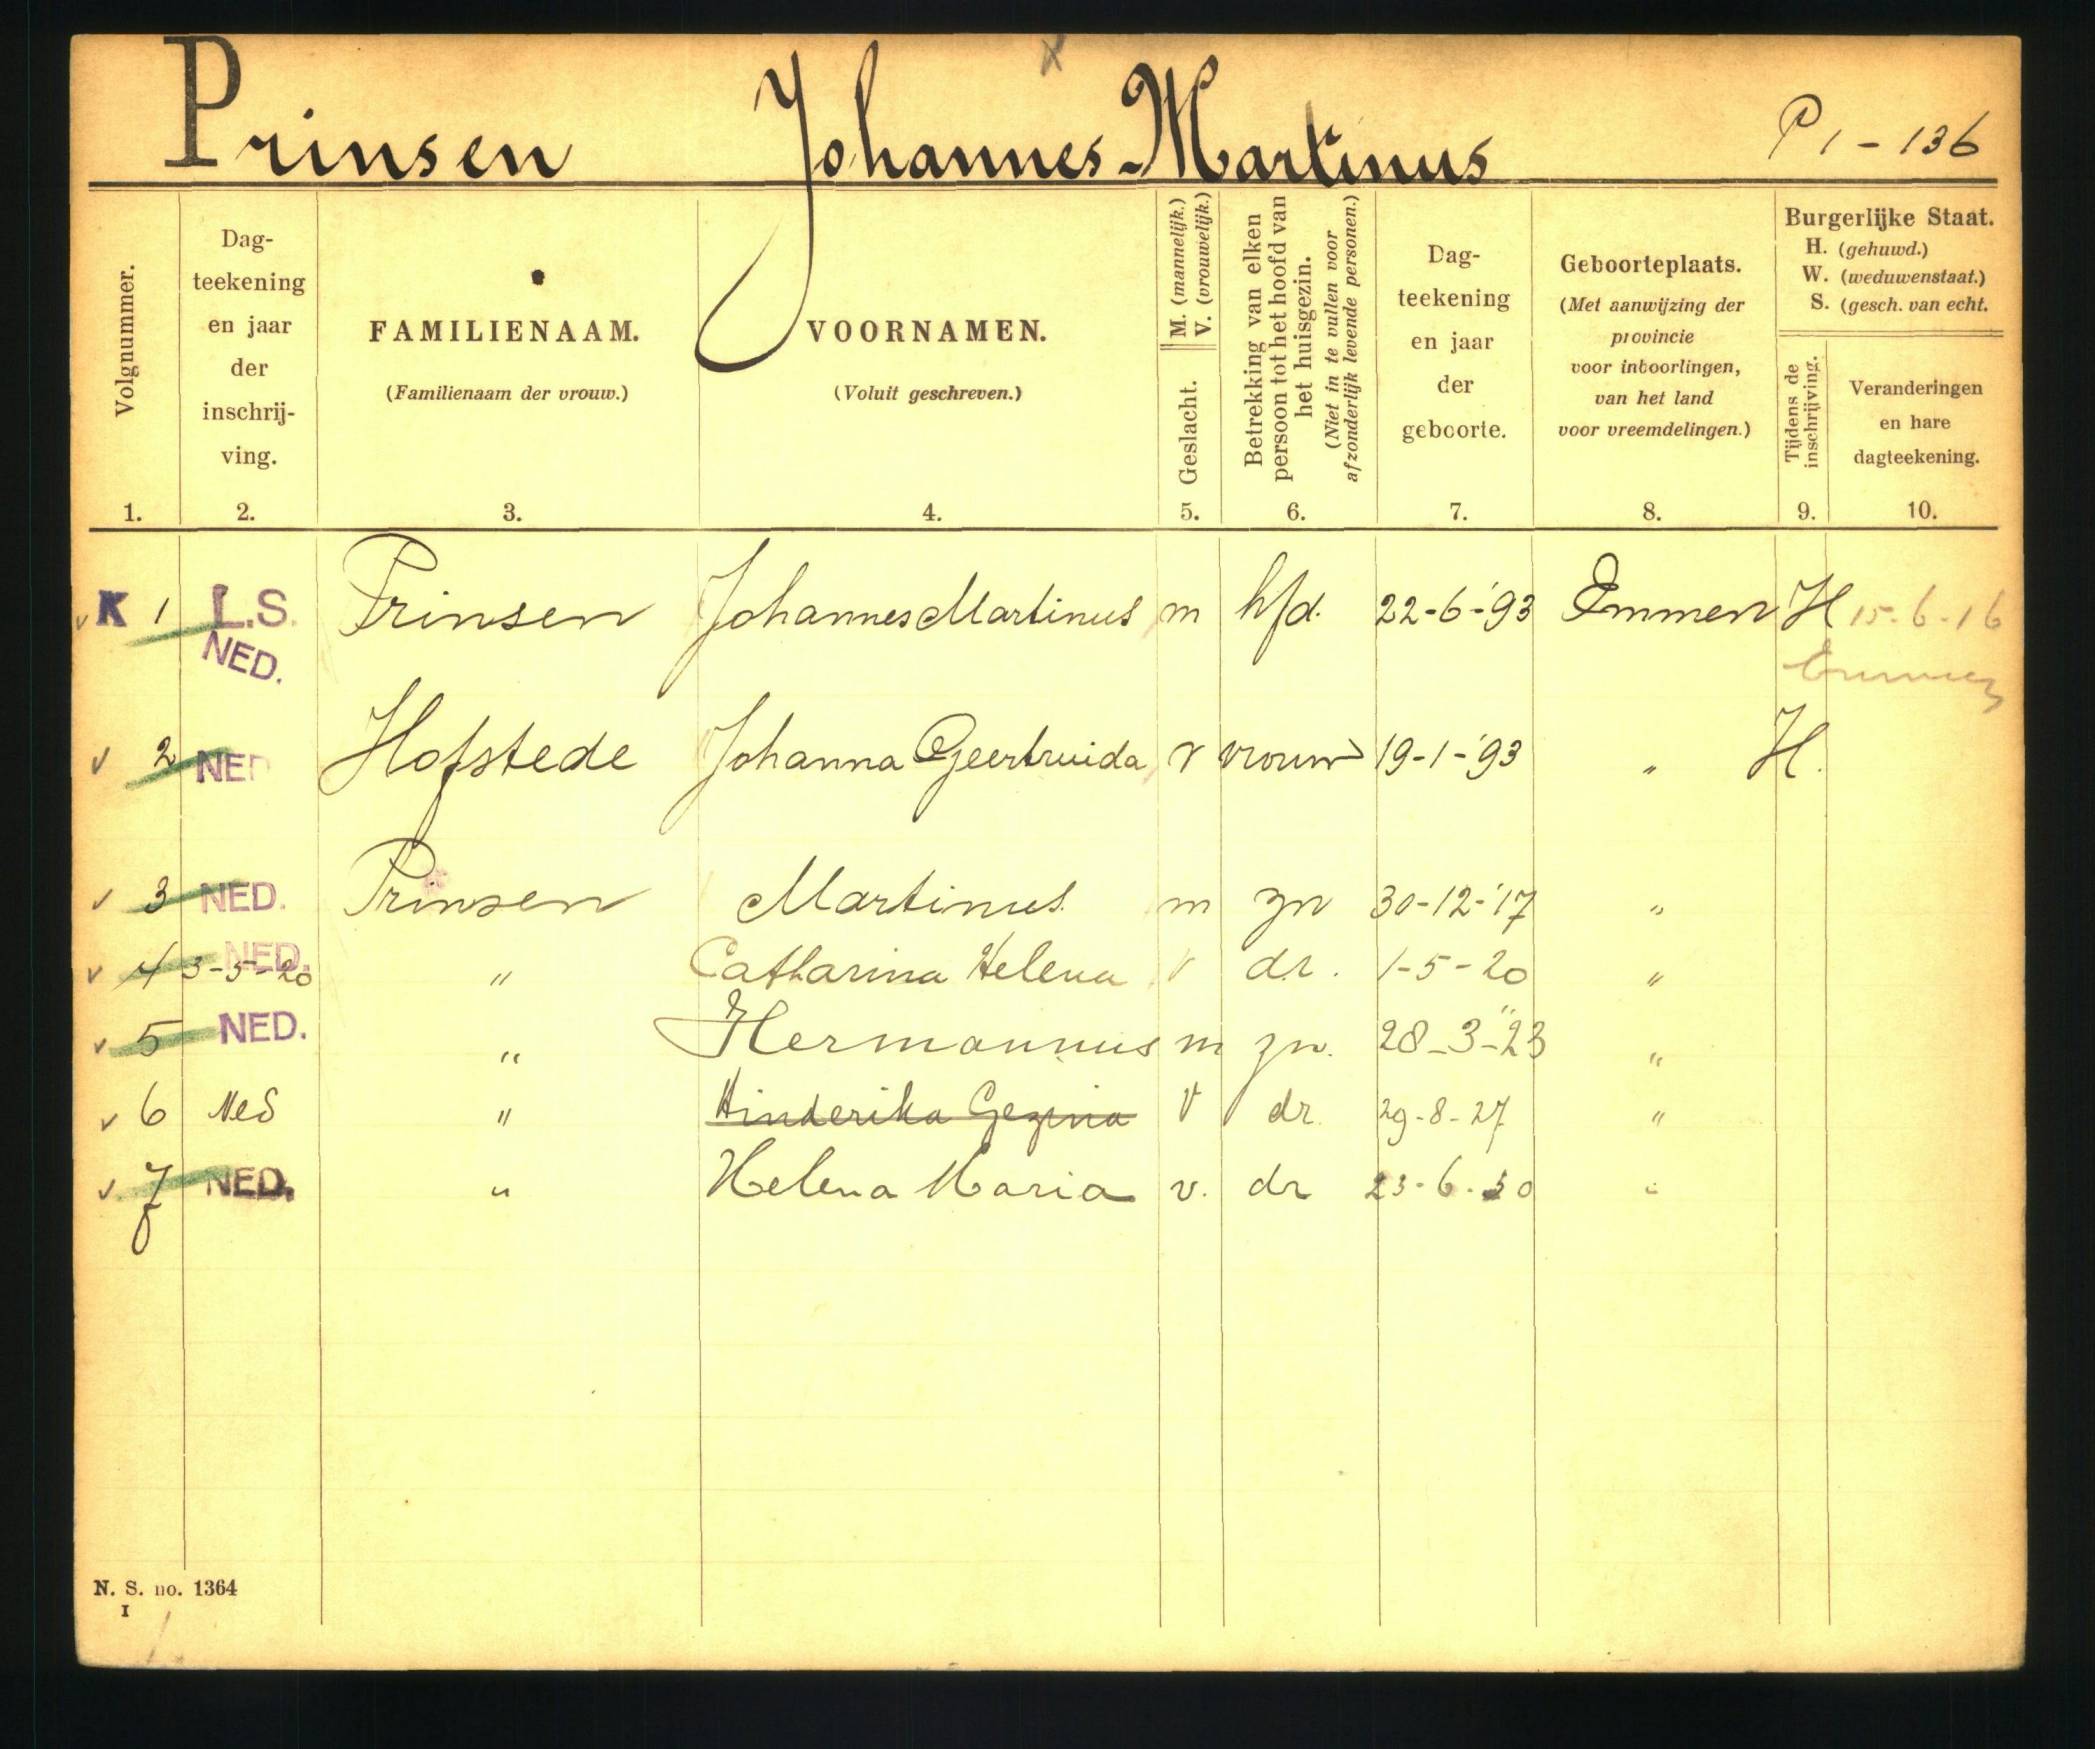 Prinsen Johannes-Martinus P 1 - 136
Volgnummer.
1.
Dag-
teekening
en jaar
der
inschrij-
ving.
2.
FAMILIENAAM.
(Familienaam der vrouw.)
3.
VOORNAMEN.
(Voluit geschreven.)
4.
Geslacht.
M. (mannelijk.)
V. (vrouwelijk.)
5.
Betrekking van elken
persoon tot het hoofd van
het huisgezin.
(Niet in te vullen voor
afzonderlijk levende personen.)
6.
Dag-
teekening
en jaar
der
geboorte.
7.
Geboorteplaats.
(Met aanwijzing der
provincie
voor inboorlingen,
van het land
voor vreemdelingen.)
8.
Burgerlijke Staat.
H. (gehuwd.)
W. (weduwenstaat.)
S. (gesch. van echt.
Tijdens de
inschrijving.
9.
Veranderingen
en hare
dagteekening.
10.
K 1 L.S. Prinsen Johannes Martinus m hfd. 22-6-'93 Emmen H 15-6-16
NED. Emmen
2 NED Hofstede Johanna Geertruida v vrouw 19-1-'93 " H.
3 NED. Prinsen Martinus m zn 30-12-'17 "
NED.
4 3-5-20 " Catharina Helena v dr. 1-5-20 "
5 NED. " Hermannus m zn. 28-3-23 "
6 Ned " Hinderika Gezina V dr. 29-8-27 "
7 NED. " Helena Maria v. dr 23-6-30 "
N. S. no. 1364
I